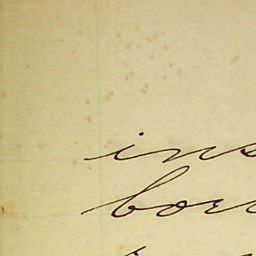 ins
bor